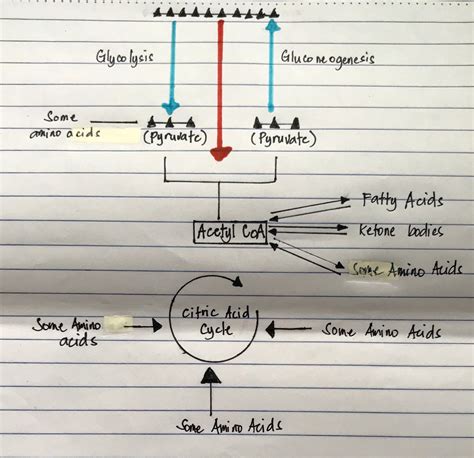 Glycolysis
Gluconeogenesis
Some
amino acids
(Pyruvate)
(Pyruvate)
Fatty Acids
Acetyl CoA
Ketone bodies
Some Amino Acids
Citric Acid
Cycle
Some Amino
acids
Some Amino Acids
Some Amino Acids